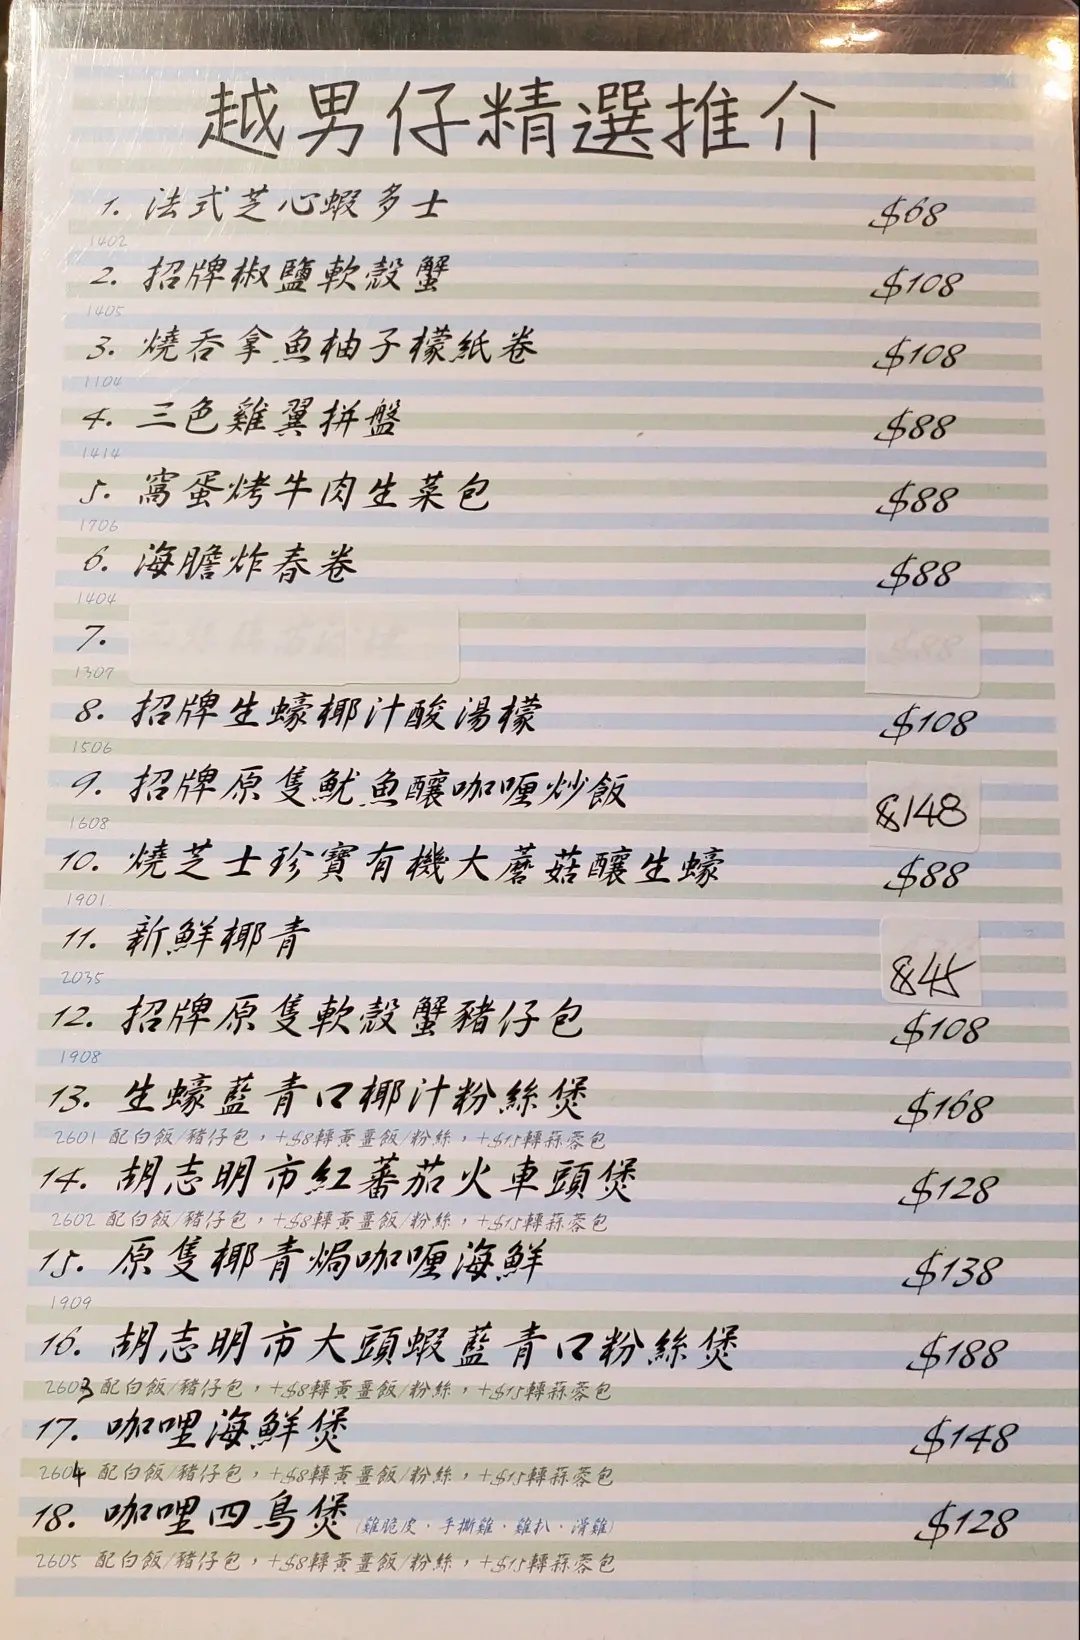 越男仔精選推介
1. 法式芝心蝦多士 $68
1402
2. 招牌椒鹽軟殼蟹 $108
1405
3. 燒吞拿魚柚子檬紙卷 $108
1104
4. 三色雞翼拼盤 $88
1414
5. 窩蛋烤牛肉生菜包 $88
1706
6. 海膽炸春卷 $88
1404
7.
1307
8. 招牌生蠔椰汁酸湯檬 $108
1506
9. 招牌原隻魷魚釀咖喱炒飯 $148
1608
10. 燒芝士珍寶有機大蘑菇釀生蠔 $88
1901
11. 新鮮椰青 $45
2035
12. 招牌原隻軟殼蟹豬仔包 $108
1908
13. 生蠔藍青口椰汁粉絲煲 $168
2601 配白飯/豬仔包，+$8轉黃薑飯/粉絲，+$15轉蒜蓉包
14. 胡志明市紅蕃茄火車頭煲 $128
2602 配白飯/豬仔包，+$8轉黃薑飯/粉絲，+$15轉蒜蓉包
15. 原隻椰青焗咖喱海鮮 $138
1909
16. 胡志明市大頭蝦藍青口粉絲煲 $188
2603 配白飯/豬仔包，+$8轉黃薑飯/粉絲，+$15轉蒜蓉包
17. 咖哩海鮮煲 $148
2604 配白飯/豬仔包，+$8轉黃薑飯/粉絲，+$15轉蒜蓉包
18. 咖哩四鳥煲(雞脆皮．手撕雞．雞扒．滑雞) $128
2605 配白飯/豬仔包，+$8轉黃薑飯/粉絲，+$15轉蒜蓉包